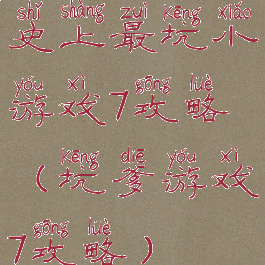 shǐ shàng zuì kēng xiǎo
史上最坑小
yóu xì gōng lüè
游戏7攻略
kēng diē yóu xì
（坑爹游戏
gōng lüè
7攻略）